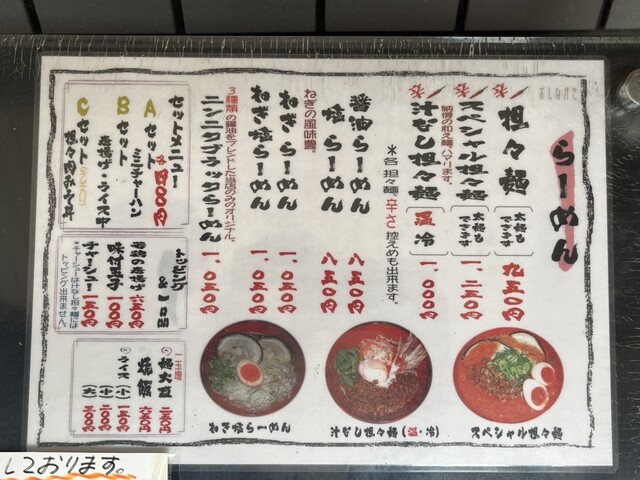 らーめん
担々麺
太麺もできます
九五〇円
スペシャル担々麺
太麺もできます
一、二五〇円
納得の和え麺、ハマります。
汁なし担々麺
温 冷
一、〇〇〇円
＊各担々麺、辛さ控えめも出来ます。
醤油らーめん
八五〇円
塩らーめん
八五〇円
ねぎの風味豊か
ねぎらーめん
一、〇五〇円
ねぎ塩らーめん
一、〇五〇円
3種類の醤油をブレンドした当店のみのオリジナル。
ニンニクブラックらーめん
一、〇五〇円
スペシャル担々麺
汁なし担々麺(温・冷)
ねぎ塩らーめん
セットメニュー
Aセット
ミニチャーハン
Bセット
唐揚げ・ライス中
Cセット
担々肉みそ丼
トッピング
味付玉子
一〇〇円
チャーシュー
＊チャーシューは汁なし担々麺にはトッピング出来ません。
一玉増
麺大盛
焼飯
ライス(小)
(中)
二〇〇円
(大)
しております。